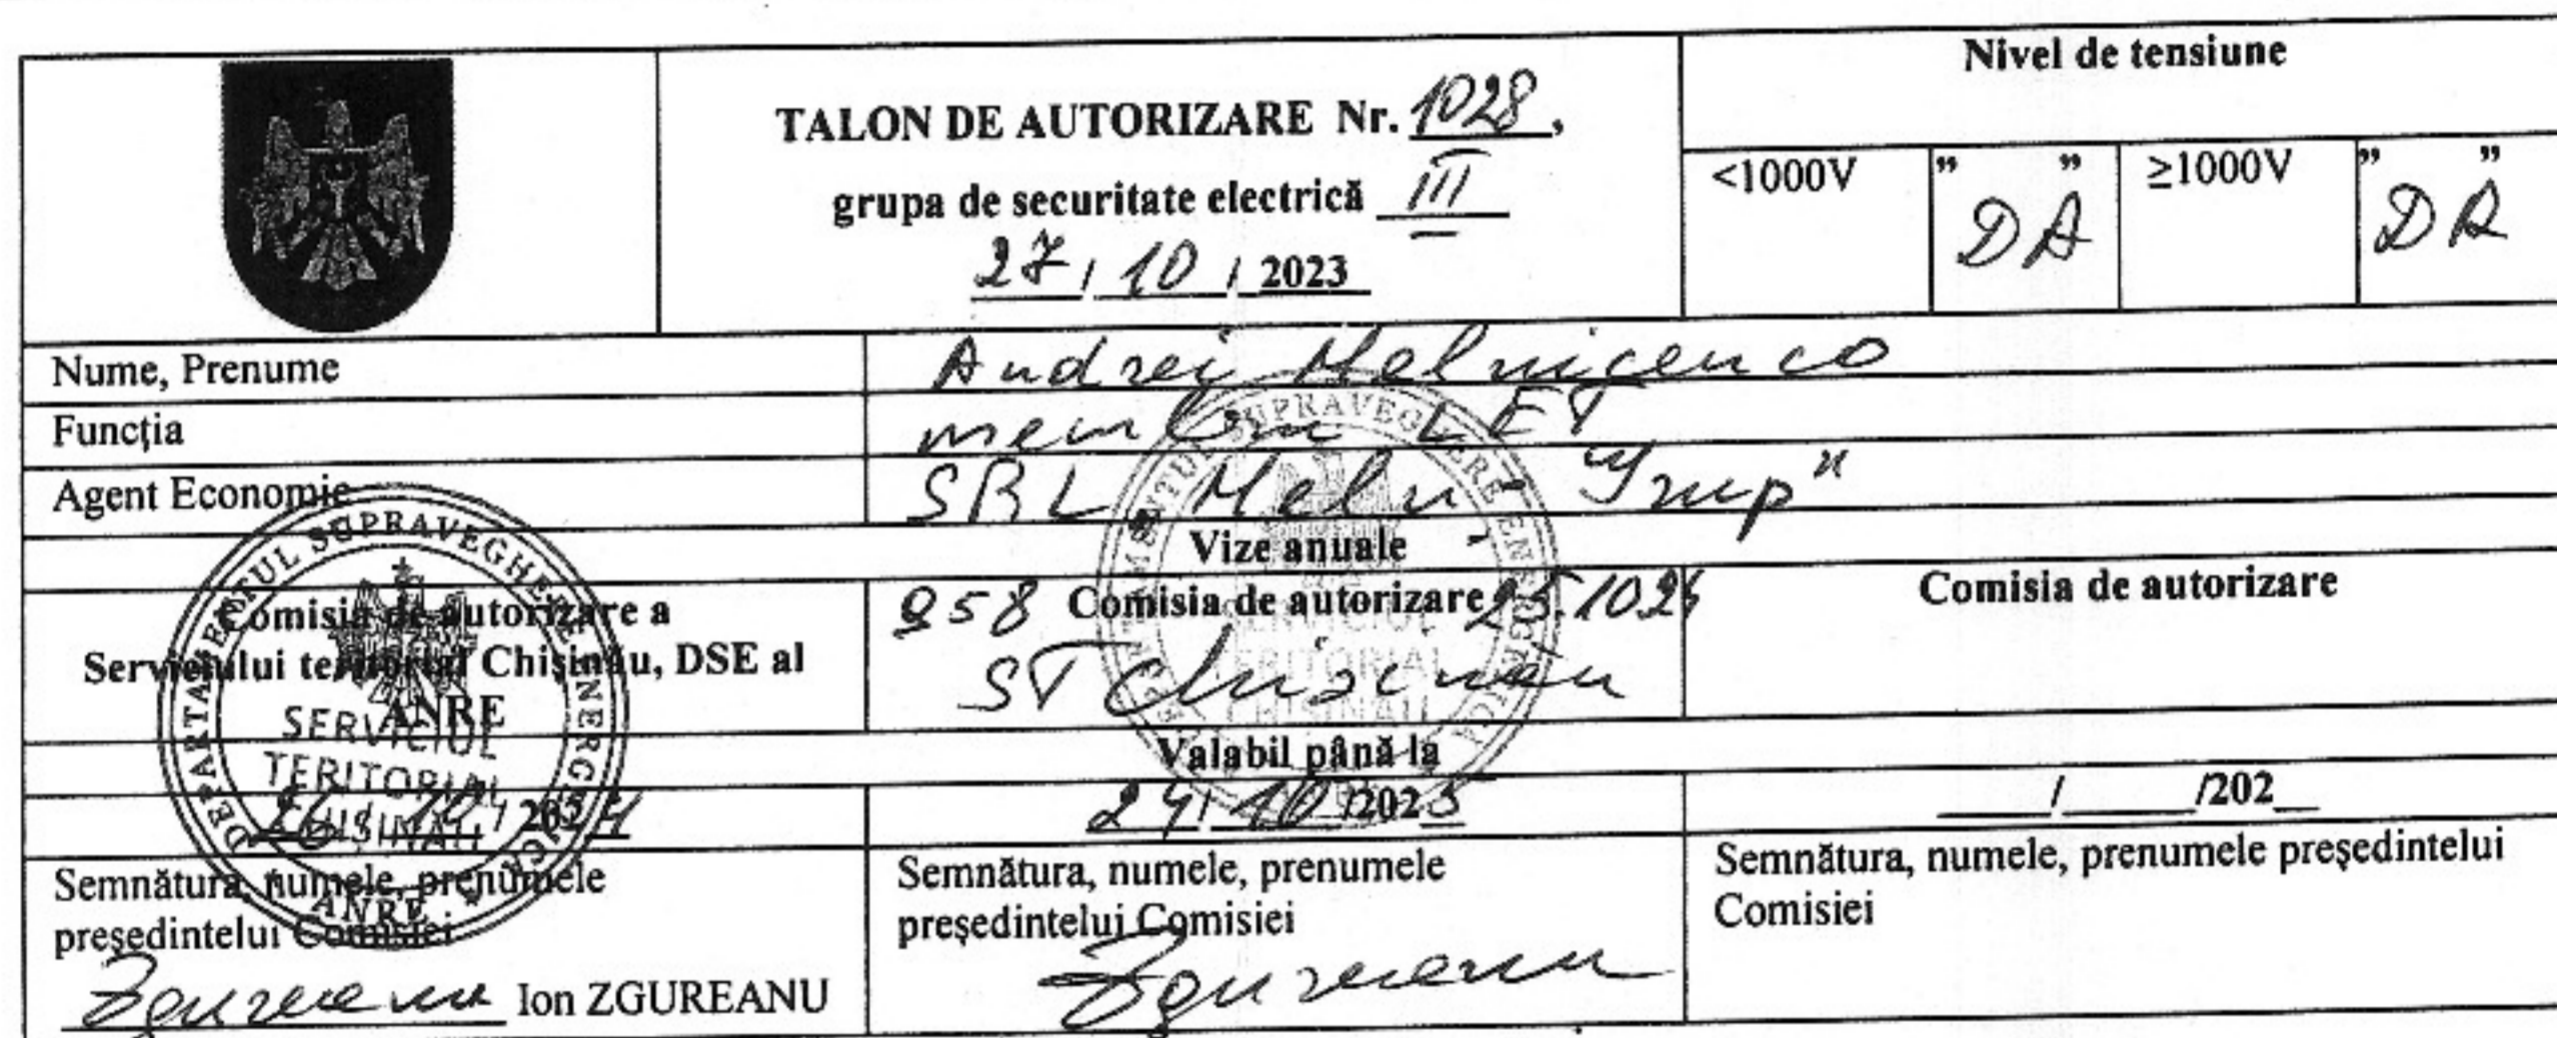 TALON DE AUTORIZARE Nr. 1028,
grupa de securitate electrică III
27 / 10 / 2023
Nivel de tensiune
<1000V " DA " ≥1000V " DA "
Nume, Prenume Andrei Melnicenco
Funcția membru LET
Agent Economic SRL "Melni Grup"
Vize anuale
Comisia de autorizare a
Serviciului teritorial Chișinău, DSE al
ANRE
958 Comisia de autorizare 25.1024
ST Chișinău
Comisia de autorizare
Valabil până la
26 / 10 / 2024
24 / 10 /2025
/ /202
Semnătura, numele, prenumele
președintelui Comisiei
Zgureanu Ion ZGUREANU
Semnătura, numele, prenumele
președintelui Comisiei
Zgureanu
Semnătura, numele, prenumele președintelui
Comisiei
DEPARTAMENTUL SUPRAVEGHERE ENERGETICĂ
ANRE
SERVICIUL
TERITORIAL
CHIȘINĂU
DEPARTAMENTUL SUPRAVEGHERE ENERGETICĂ
SERVICIUL
TERITORIAL
CHIȘINĂU